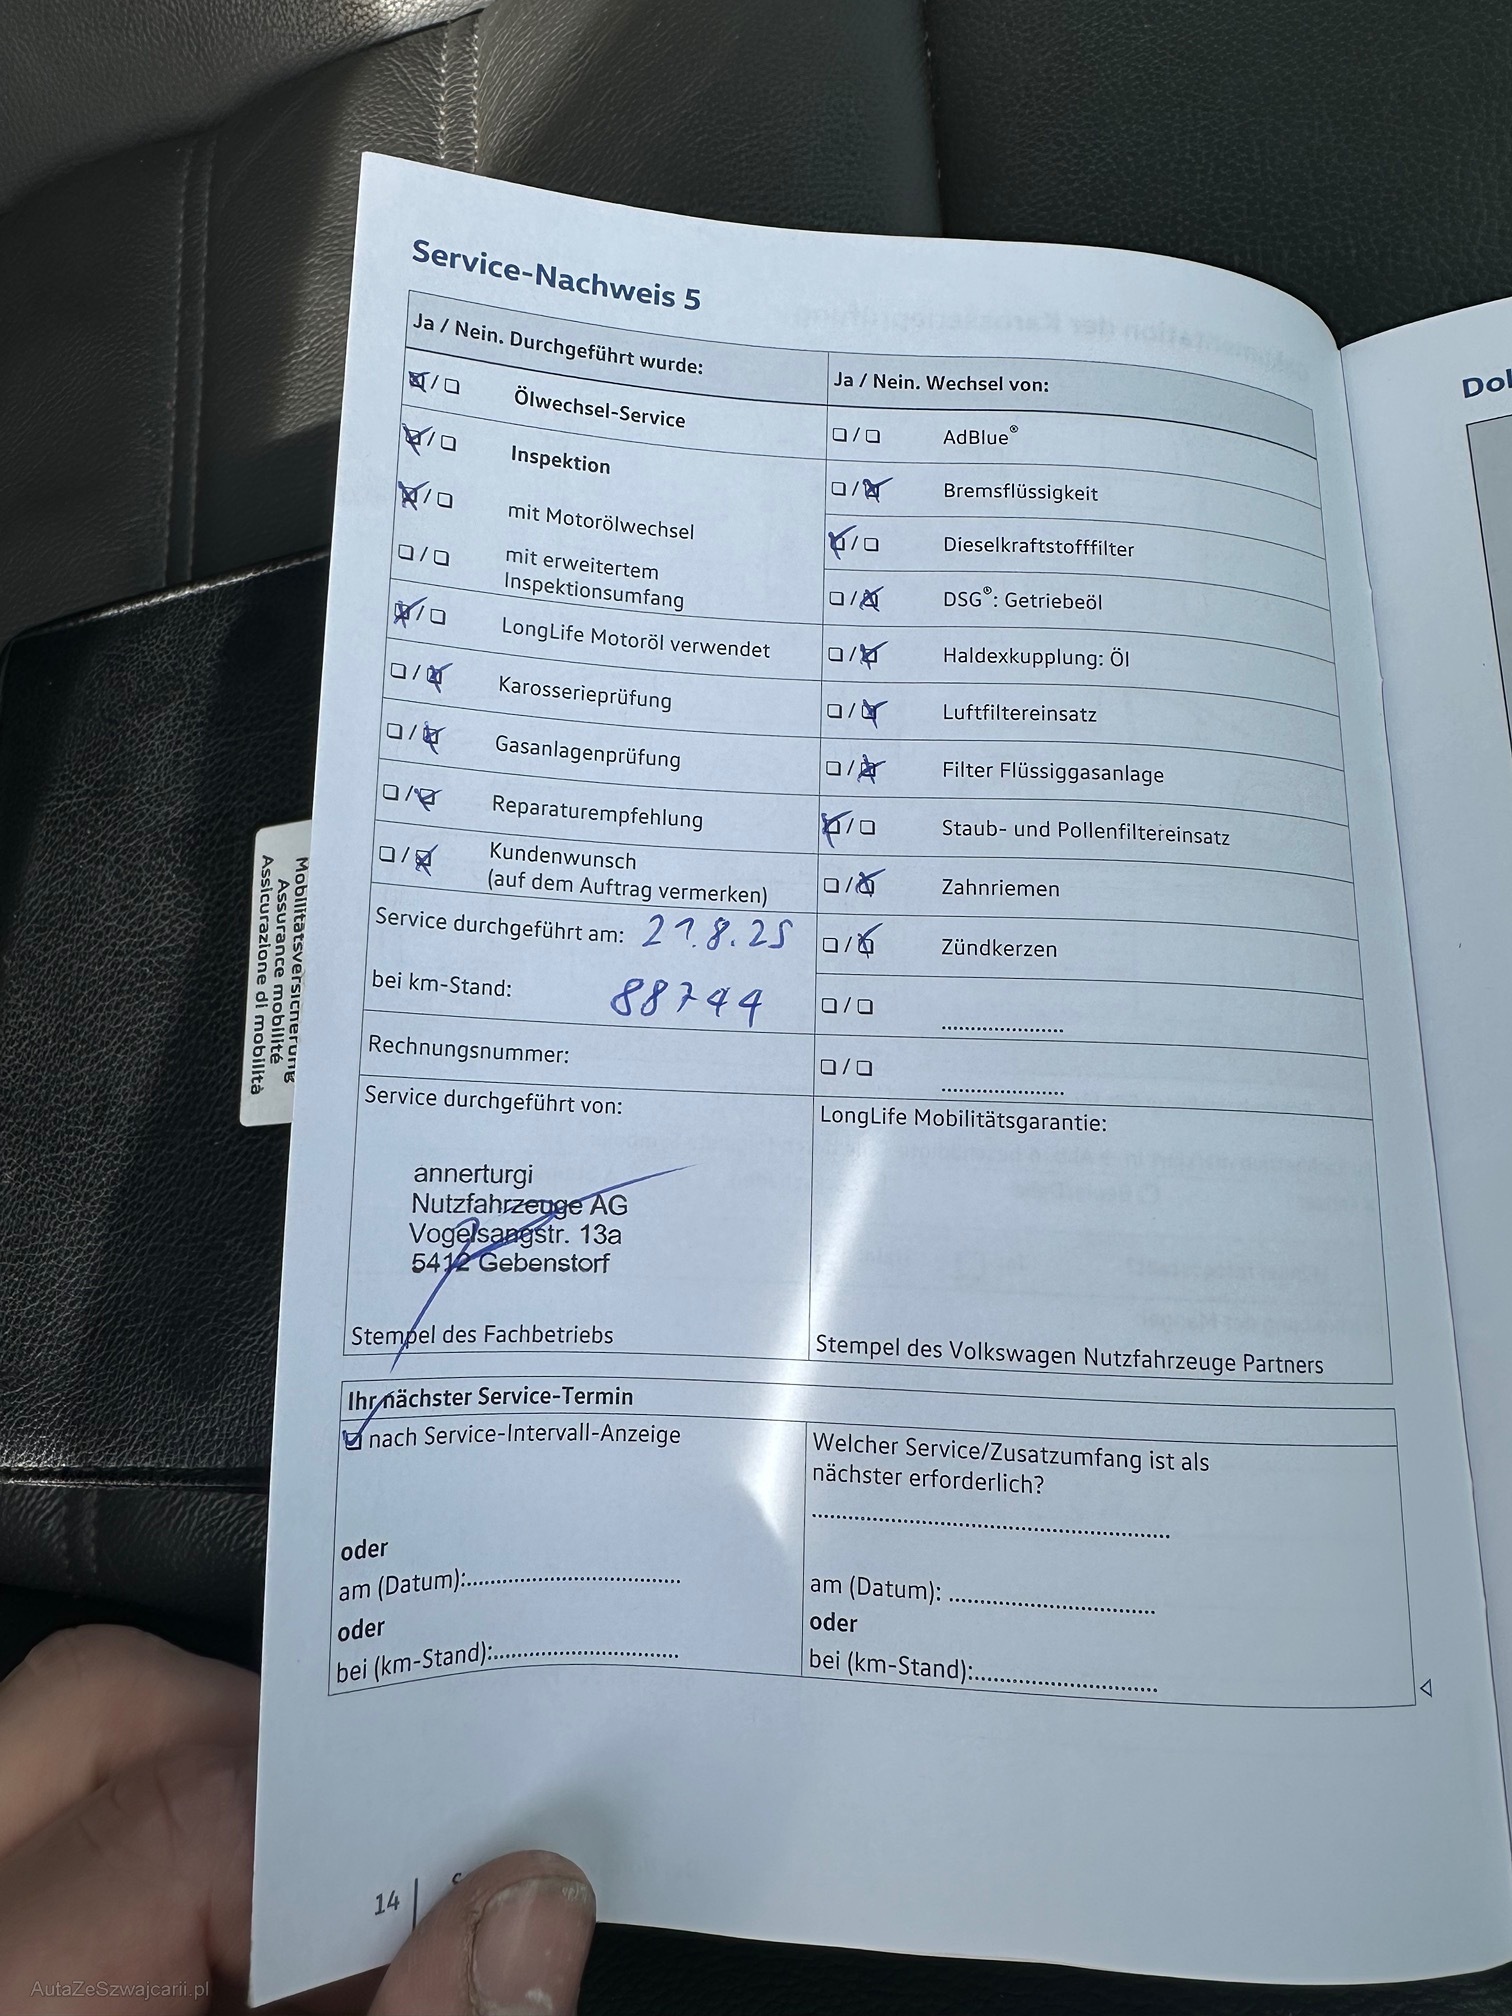 Service-Nachweis 5
Ja / Nein. Durchgeführt wurde:
Ölwechsel-Service
Inspektion
mit Motorölwechsel
mit erweitertem
Inspektionsumfang
LongLife Motoröl verwendet
Karosserieprüfung
Gasanlagenprüfung
Reparaturempfehlung
Kundenwunsch
(auf dem Auftrag vermerken)
Service durchgeführt am: 21.8.25
bei km-Stand: 88744
Rechnungsnummer:
Service durchgeführt von:
annerturgi
Nutzfahrzeuge AG
Vogelsangstr. 13a
5412 Gebenstorf
Stempel des Fachbetriebs
Ja / Nein. Wechsel von:
AdBlue®
Bremsflüssigkeit
Dieselkraftstofffilter
DSG®: Getriebeöl
Haldexkupplung: Öl
Luftfiltereinsatz
Filter Flüssiggasanlage
Staub- und Pollenfiltereinsatz
Zahnriemen
Zündkerzen
LongLife Mobilitätsgarantie:
Stempel des Volkswagen Nutzfahrzeuge Partners
Ihr nächster Service-Termin
nach Service-Intervall-Anzeige
oder
am (Datum):
oder
bei (km-Stand):
Welcher Service/Zusatzumfang ist als
nächster erforderlich?
am (Datum):
oder
bei (km-Stand):
14
Mobilitätsversicherung
Assurance mobilité
Assicurazione di mobilità
AutaZeSzwajcarii.pl